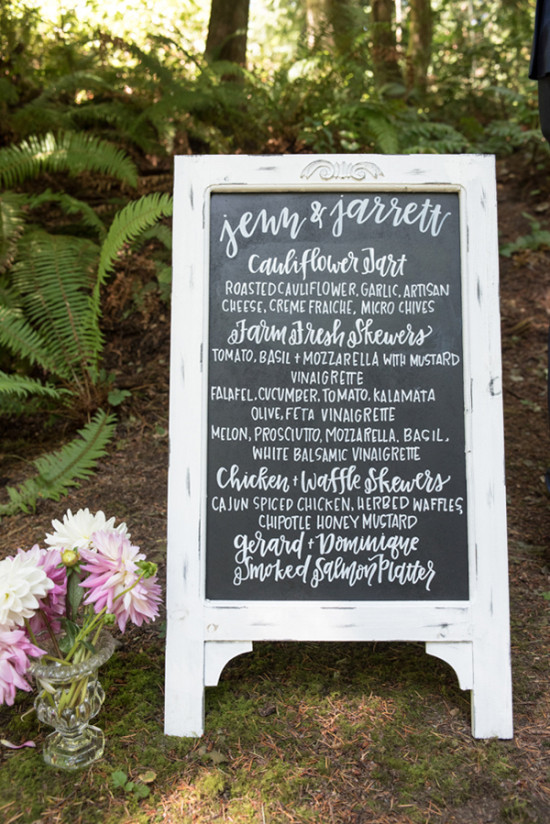 jenn & jarrett
Cauliflower Tart
ROASTED CAULIFLOWER, GARLIC, ARTISAN
CHEESE, CREME FRAICHE, MICRO CHIVES
Farm Fresh Skewers
TOMATO, BASIL + MOZZARELLA WITH MUSTARD
VINAIGRETTE
FALAFEL, CUCUMBER, TOMATO, KALAMATA
OLIVE, FETA VINAIGRETTE
MELON, PROSCIUTTO, MOZZARELLA, BASIL,
WHITE BALSAMIC VINAIGRETTE
Chicken + Waffle Skewers
CAJUN SPICED CHICKEN, HERBED WAFFLES,
CHIPOTLE HONEY MUSTARD
Gerard + Dominique
Smoked Salmon Platter